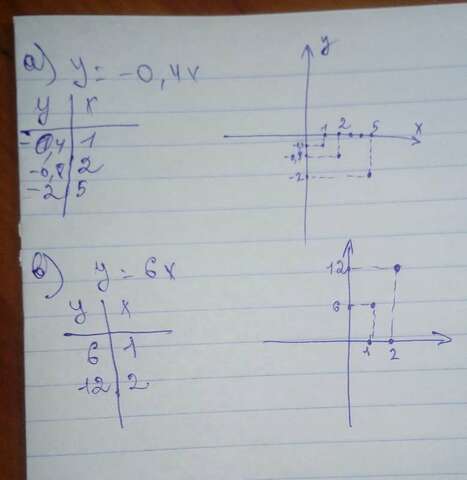 а) y = -0,4x
y x
-0,4 1
-0,8 2
-2 5
y
x
1 2 5
-0,8
-2
в) y = 6x
y x
6 1
12 2
12
6
1 2